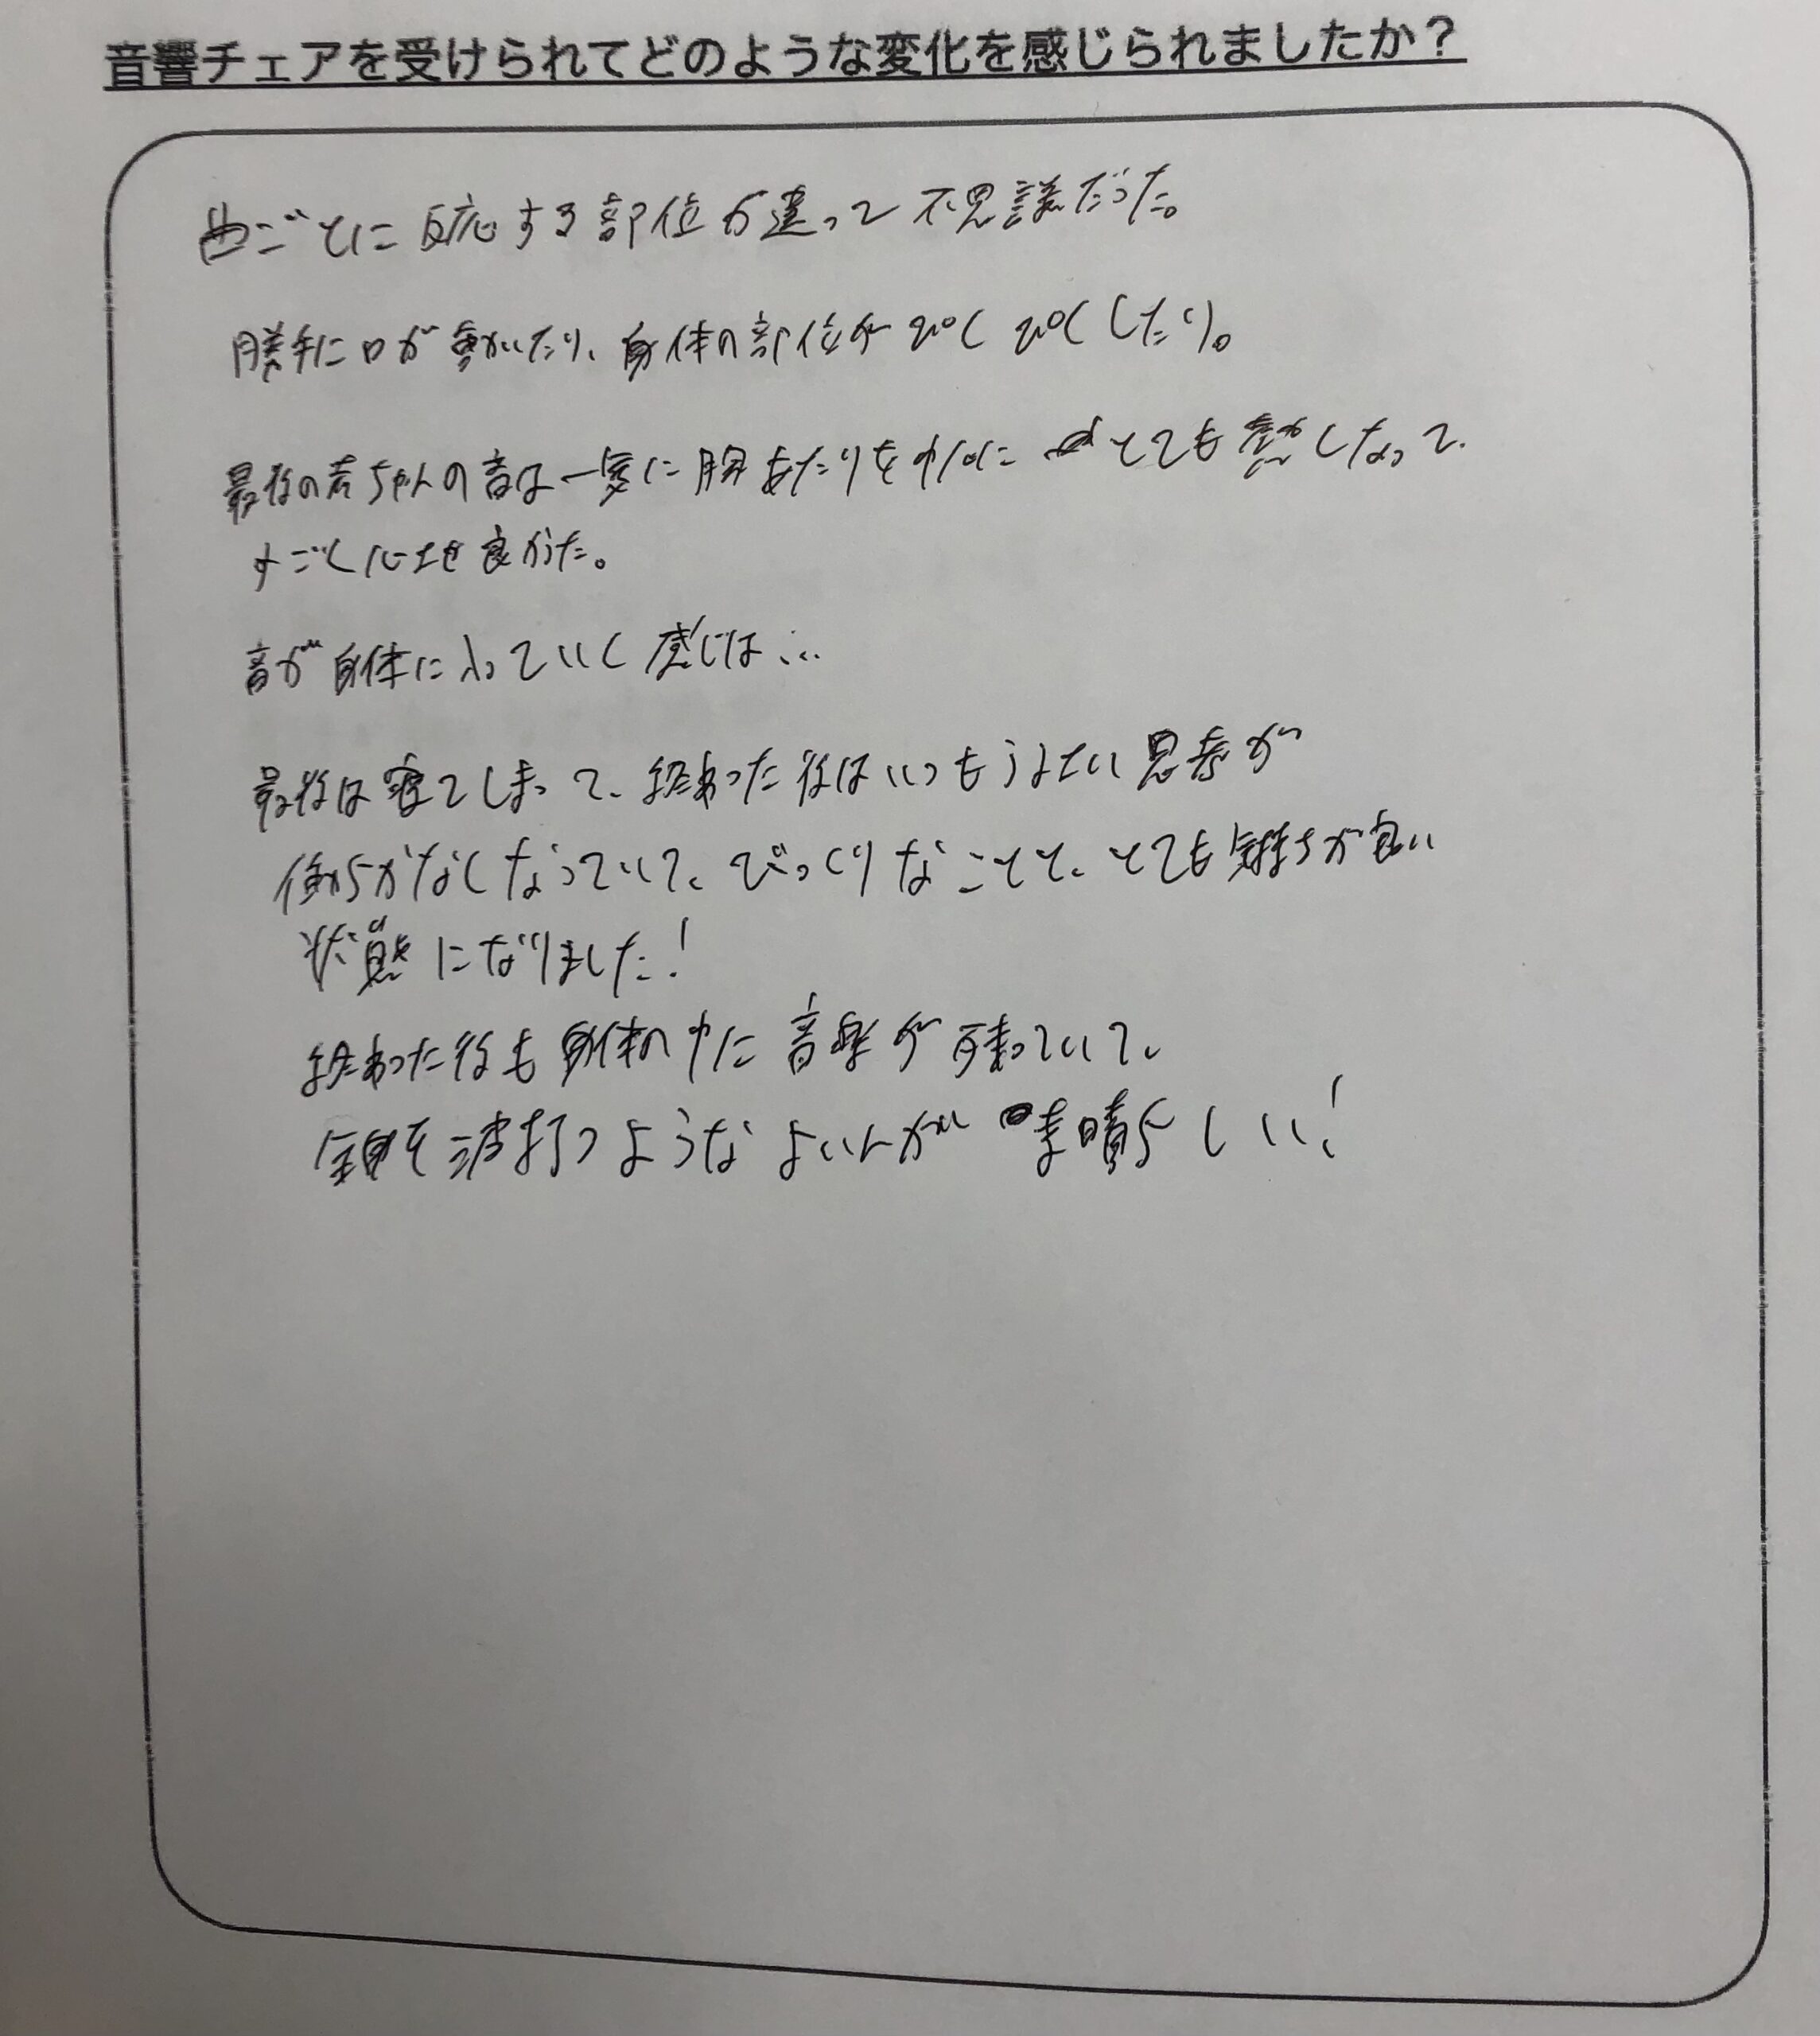 音響チェアを受けられてどのような変化を感じられましたか？
曲ごとに反応する部位が違って不思議だった。
勝手に口が動いたり、身体の部位がぴくぴくしたり。
最後の赤ちゃんの音は一気に胸あたりを中心にとても熱くなって
すごく心地良かった。
音が身体に入っていく感じは…
最後は寝てしまって、終わった後はいつもうるさい思考が
働らかなくなっていて、びっくりなことと、とても気持ちが良い
状態になりました！
終わった後も身体の中に音楽が残っていて、
全身を波打つようなよいんが素晴らしい！